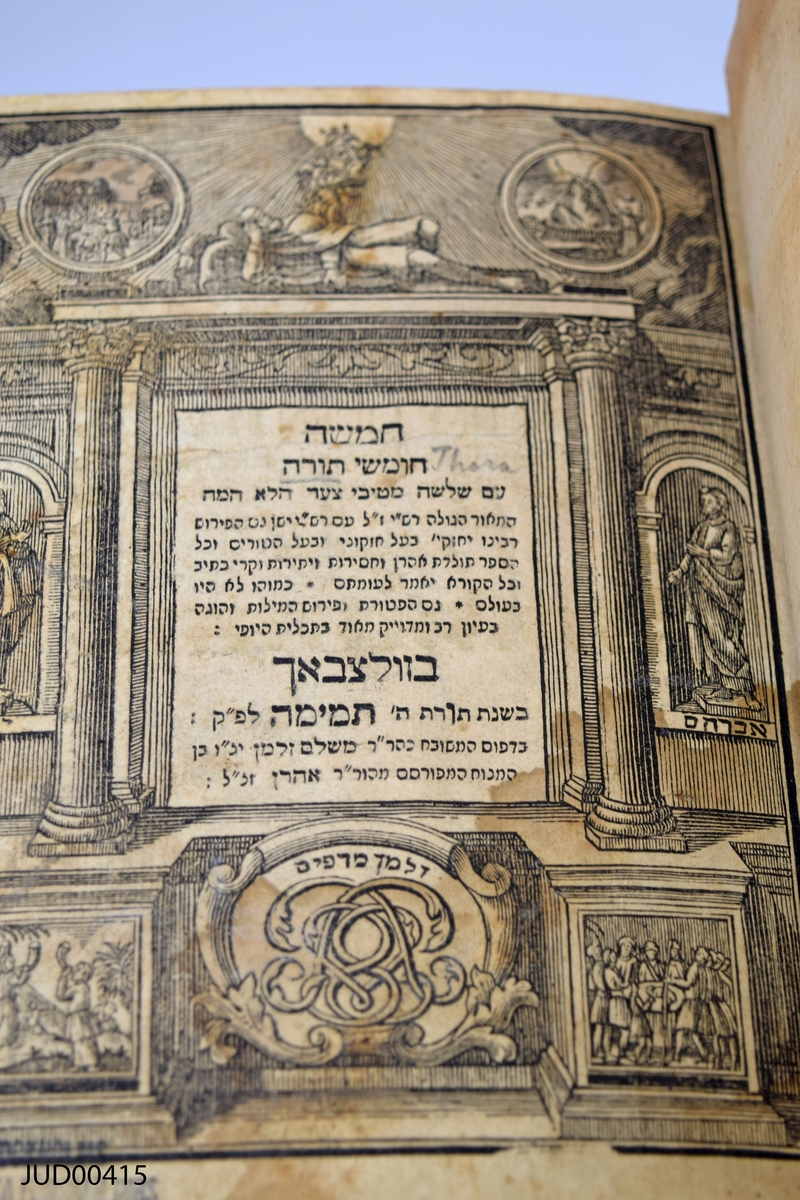 חמשה
חומשי תורה Thora
עם שלשה מטיבי צער הלא המה
המאור הגולה רש״י ז״ל עם רש״י ישן גם הפירוש
רבינו יחזקי׳ בעל חזקוני ובעל הטורים וכל
הספר תולדת אהרן וחסירות ויתירות וקרי כתיב
וכל הקורא יאמר לעומתם * כמוהו לא היו
בעולם * גם הפטורת ופירוש המילות והוגה
בעיון רב ומדוייק מאוד בתכלית היופי :
בזולצבאך
בשנת תורת ה׳ תמימה לפ״ק :
בדפוס המשובח כהר״ר משלם זלמן יצ״ו בן
המנוח המפורסם מהור״ר אהרן זצ״ל :
אברהם
זלמן מדפיס
JUD00415